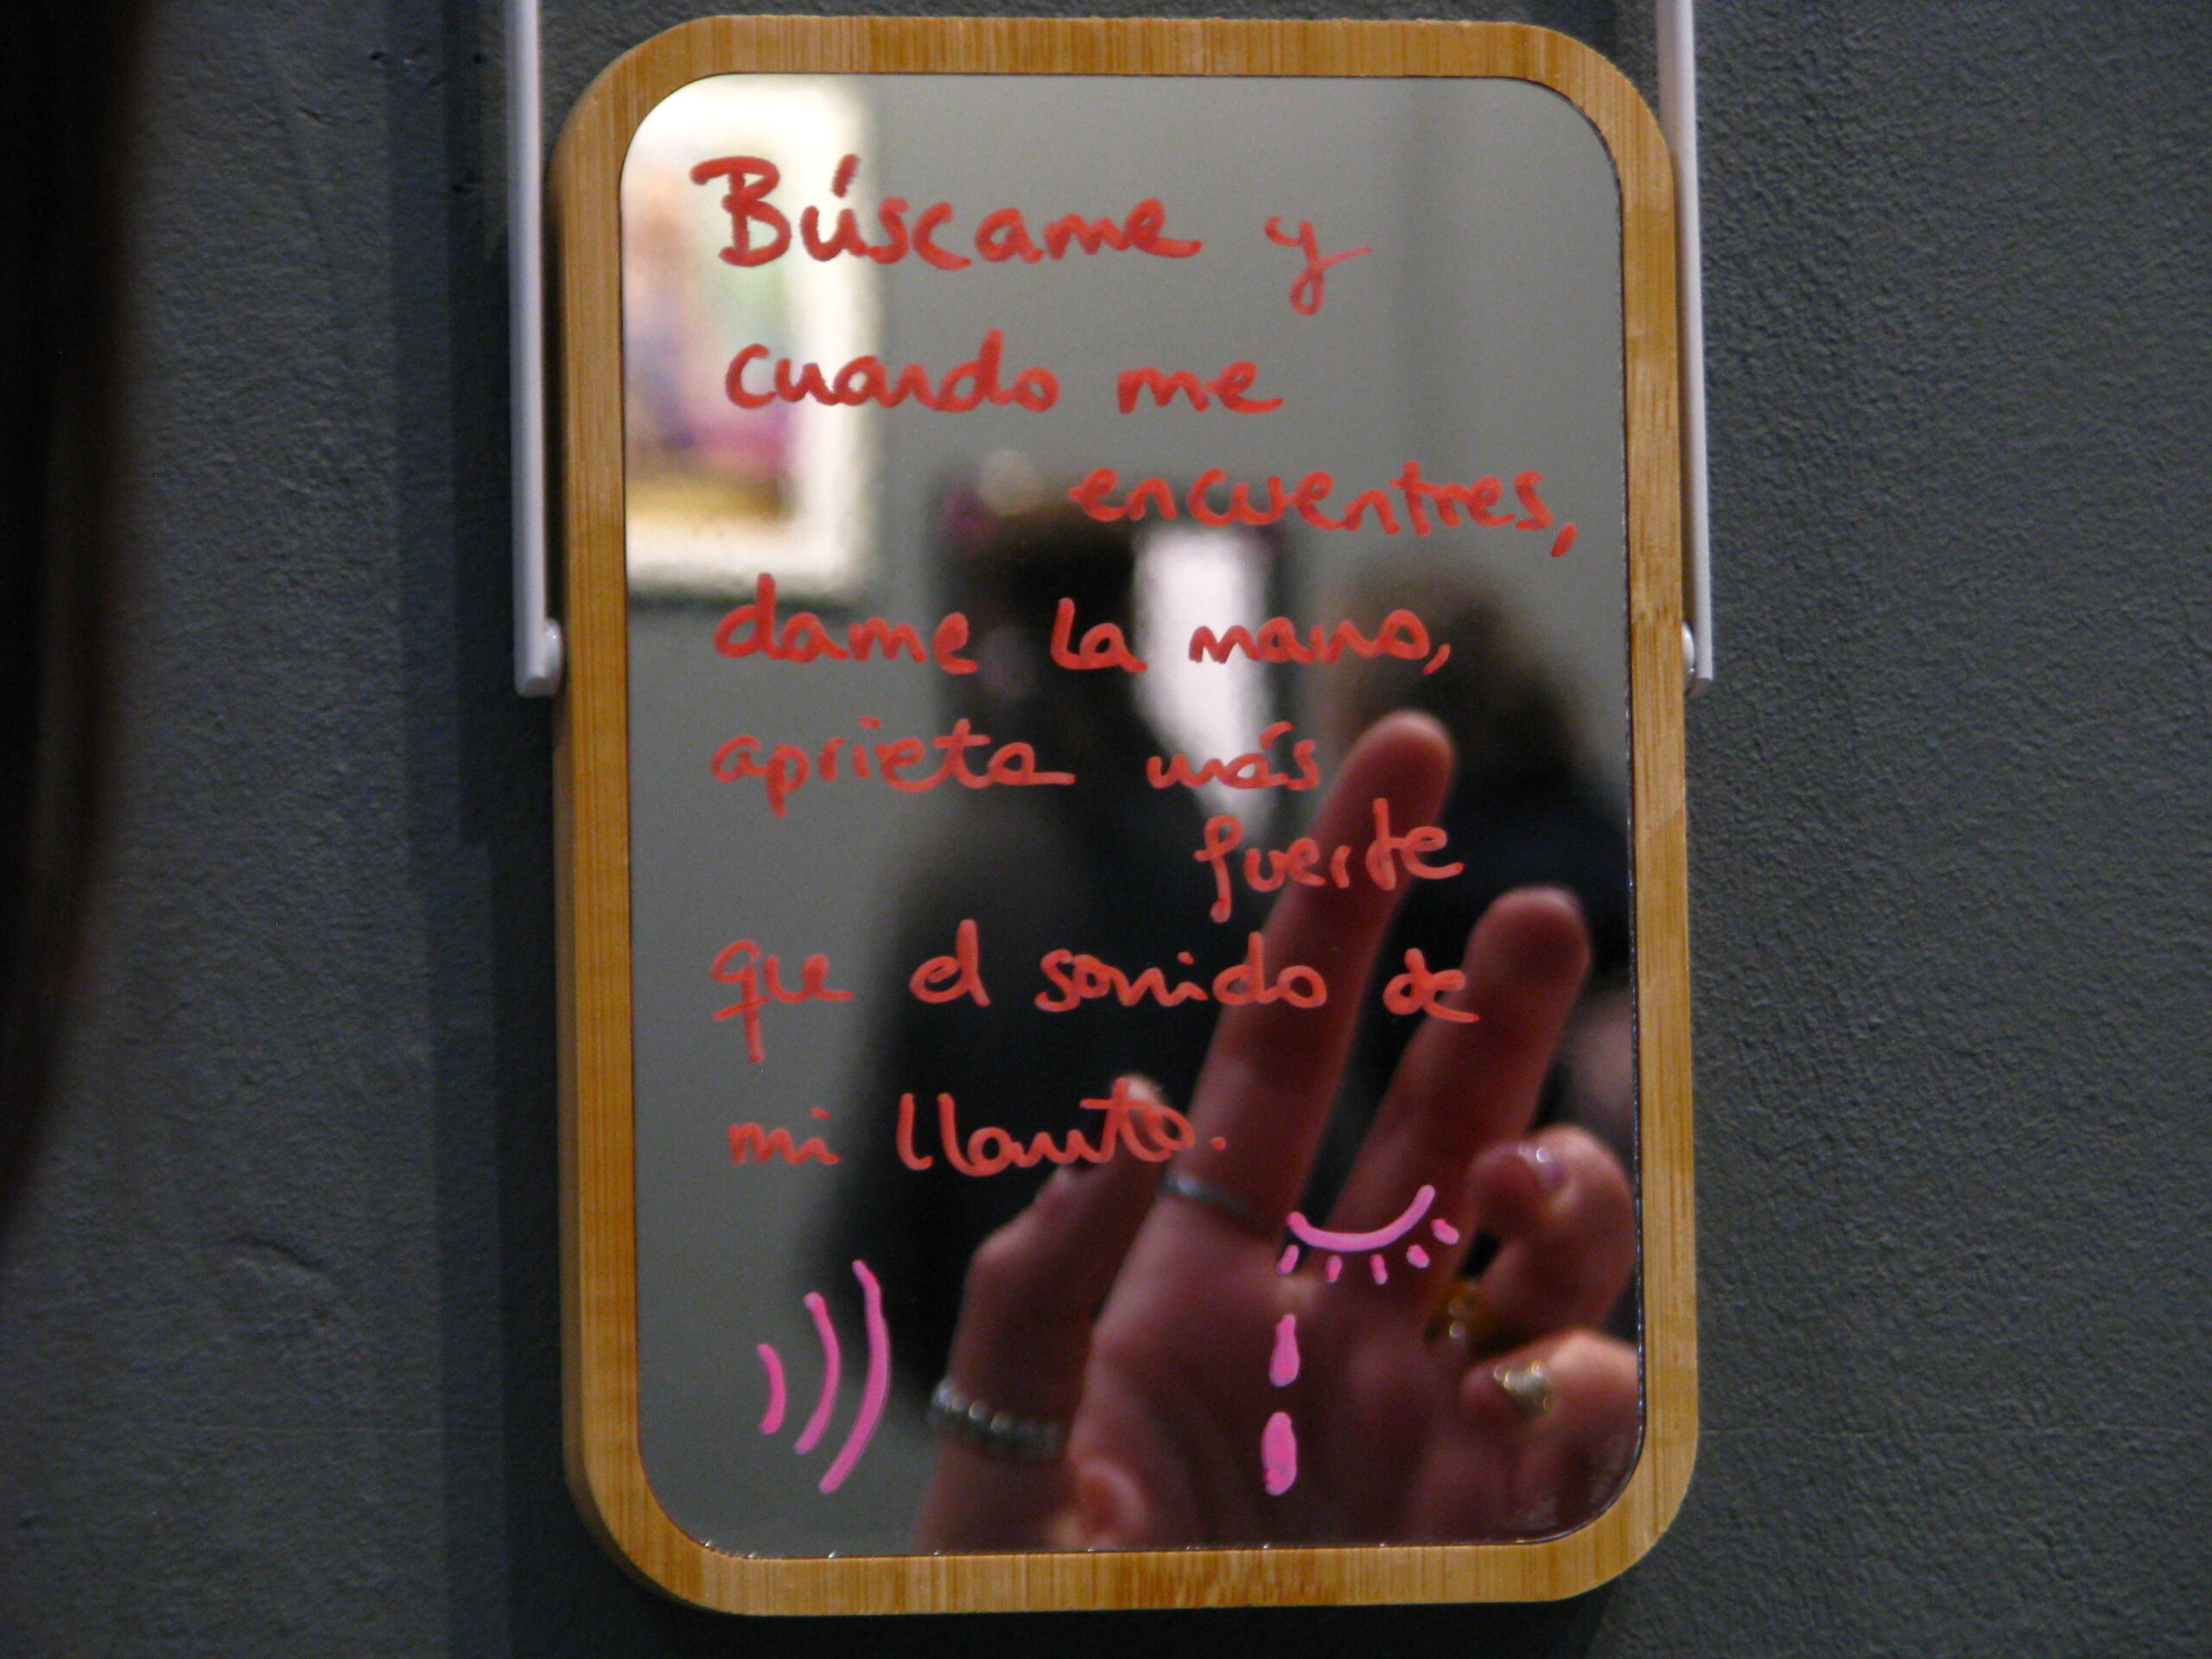 Búscame y
cuando me
encuentres,
dame la mano,
aprieta más
fuerte
que el sonido de
mi llanto.